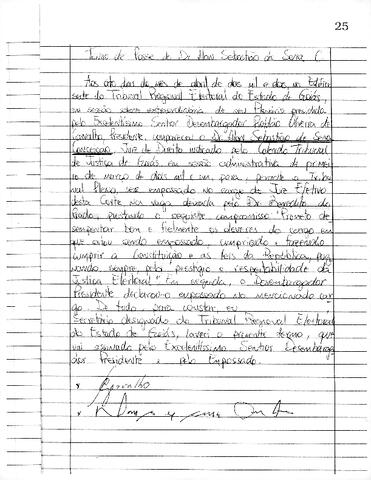 25
Termo de Posse de Dr. Alvo Sebastião da Serra C.
Aos oito dias do mês de abril de dois mil e dois, no Edifício
sede do Tribunal Regional Eleitoral do Estado de Goiás,
em sessão de seu Plenário presidida
pelo Excelentíssimo Senhor Desembargador Oliveira de
Carvalho, Presidente, compareceu o Sebastião da Serra
Juiz de Direito indicado pelo Colendo Tribunal
de Justiça de Goiás em sessão administrativa de primei-
ro de março de dois mil e um para, perante o Tribu-
nal Pleno, ser empossado no cargo de Juiz Efetivo
desta Corte na vaga deixada pelo Dr. Benedito do
Prado, prestando o seguinte compromisso: "Prometo de-
sempenhar bem e fielmente os deveres do cargo em
que estou sendo empossado, cumprindo e fazendo
cumprir a Constituição e as leis da República, pug
nando sempre pelo prestígio e responsabilidade da
Justiça Eleitoral". Em seguida, o Desembargador
Presidente declarou-o empossado no mencionado car-
go. De tudo, para constar, eu
Secretário designado do Tribunal Regional Eleitoral
do Estado de Goiás, lavrei o presente termo, que
vai assinado pelo Excelentíssimo Senhor Desembarga
dor Presidente e pelo Empossado.
Carvalho